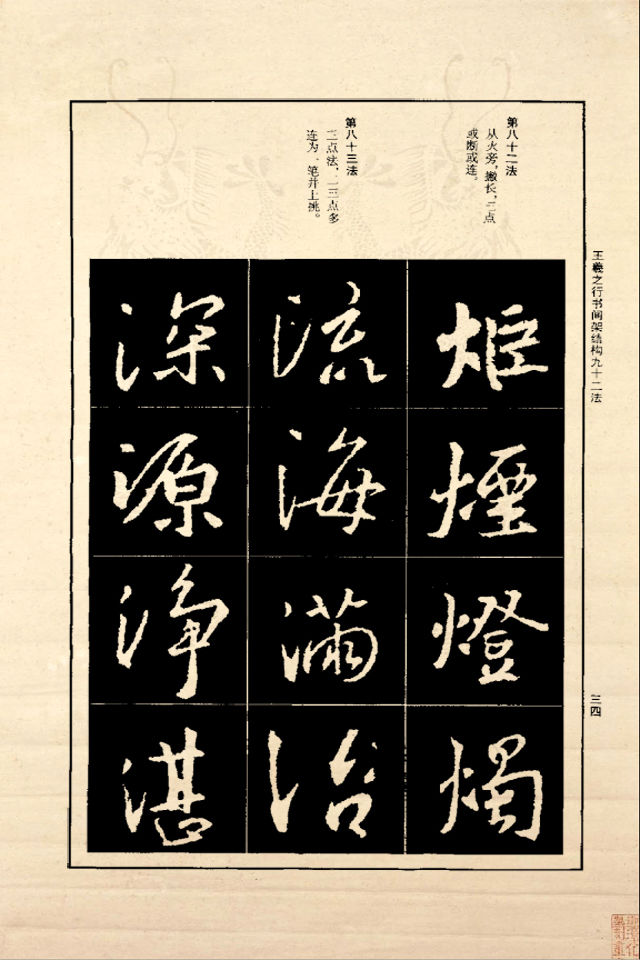 王羲之行书间架结构九十二法
三四
第八十二法
从火旁，撇长，三点
或断或连。
第八十三法
三点法，二三点多
连为一笔并上挑。
炬
煙
燈
燭
流
海
满
治
深
源
淨
湛